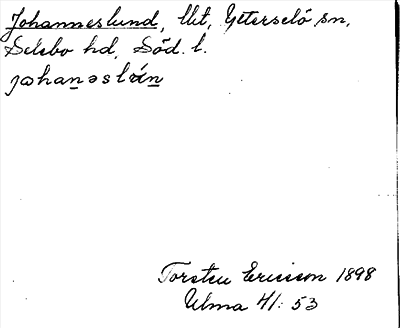 Johanneslund, llt, Ytterselö sn,
Selebo hd, Söd. l.
johanəslún
Torsten Ericsson 1898
Ulma 41: 53